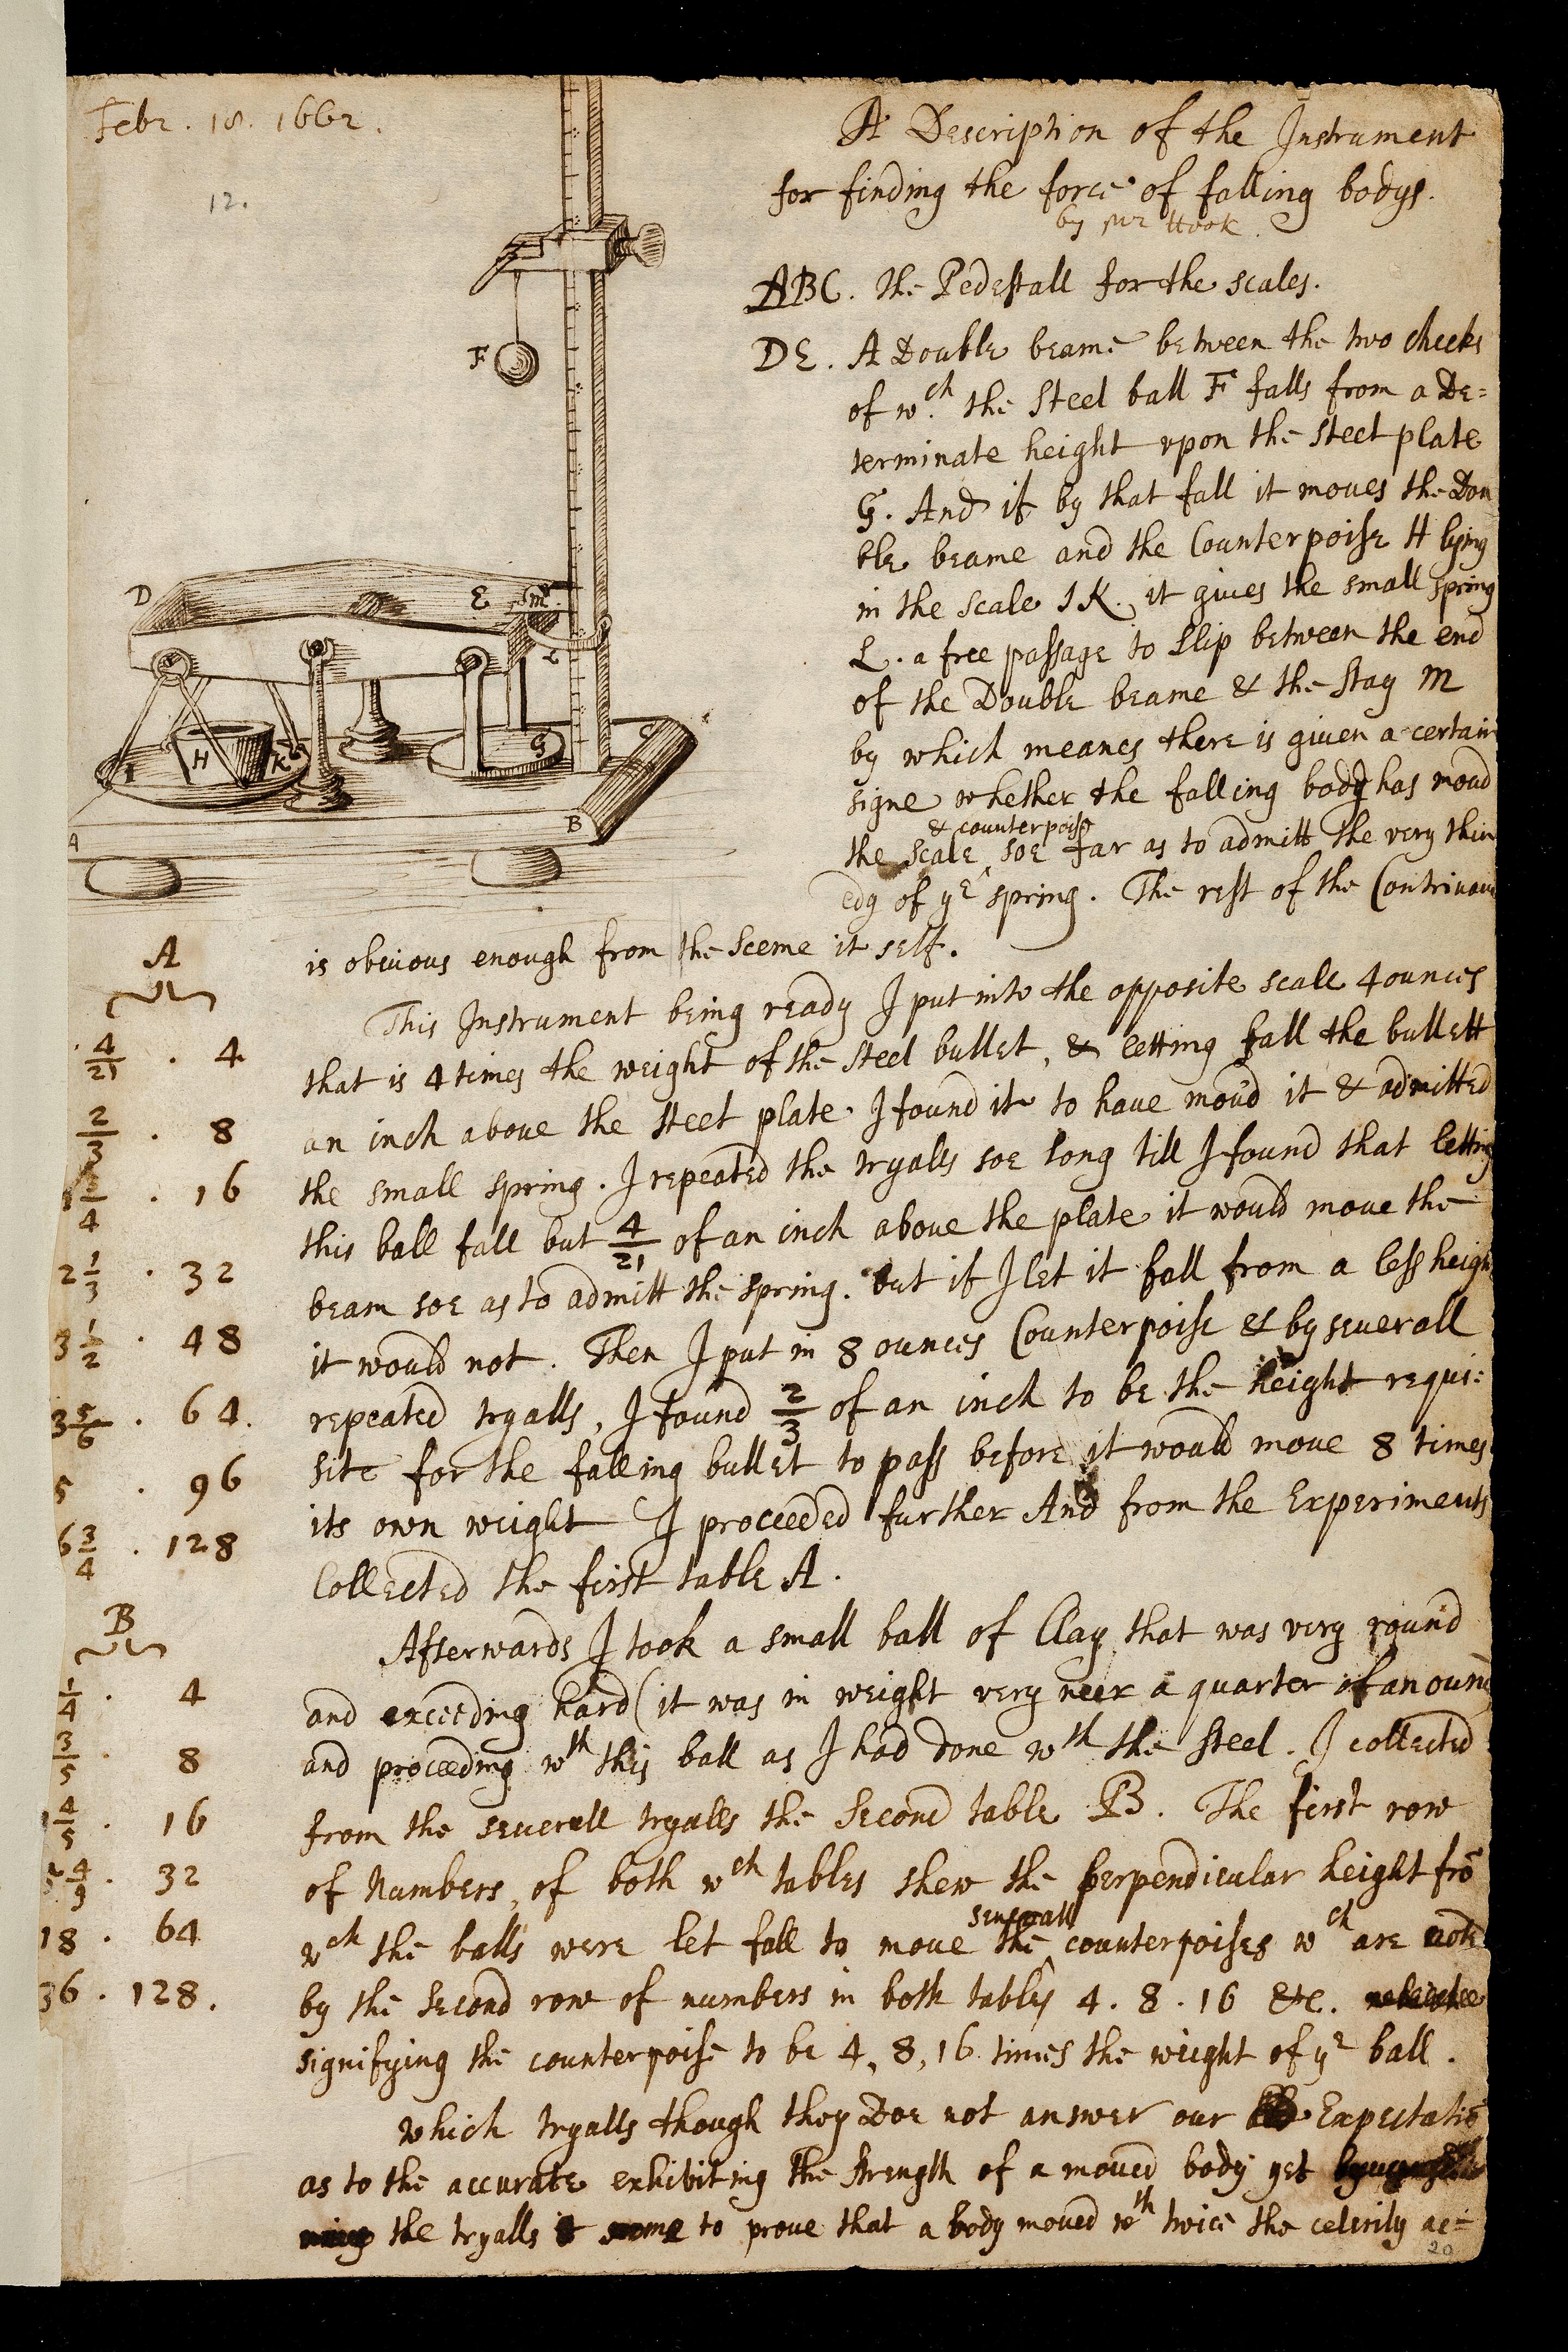 Febr. 18. 1662.
12.
A Description of the Instrument
for finding the force of falling bodys.
by mr Hook.
ABC. The Pedestall for the scales.
DE. A Double beame between the two cheeks
of wch. the Steel ball F falls from a De=
terminate height vpon the steel plate
G. And if by that fall it moues the Dou
ble beame and the Counterpoise H lying
in the scale IK. it giues the small spring
L. a free passage to slip between the end
of the Double beame & the stay M
by which meanes there is giuen a certain
signe whether the falling body has moud
& counterpoise
the scale ^ soe far as to admitt the very thin
edg of ye spring. The rest of the Contriuanc
is obuious enough from the sceme it self.
F
D
E
m
L
G
H
I
K
C
B
A
This Instrument being ready I put into the opposite scale 4 ounces
that is 4 times the weight of the steel bullet, & letting fall the bullett
an inch aboue the steel plate I found it to haue mou'd it & admitted
the small spring. I repeated the tryalls soe long till I found that letting
this ball fall but 4/21 of an inch aboue the plate it would moue the
beam soe as to admitt the spring. but if I let it fall from a less heigh
it would not. Then I put in 8 ounces Counterpoise & by seuerall
repeated tryalls, I found 2/3 of an inch to be the height requi=
site for the falling bullet to pass before it would moue 8 times
its own weight I proceeded further And from the Experiments
Collected the first table A.
A
4/21 . 4
2/3 . 8
. 16
2 1/3 . 32
3 1/2 . 48
3 5/6 . 64.
5 . 96
6 3/4 . 128
Afterwards I took a small ball of Clay that was very round
and exceeding hard (it was in weight very neer a quarter of an ounc
and proceeding wth this ball as I had done wth the steel. I collected
from the seuerall tryalls the second table B. The first row
of Numbers, of both wch tables shew the perpendicular height frō
seuerall
wch the balls were let fall to moue the ^ counterpoises wch are note
by the second row of numbers in both tables 4. 8. 16 &c.
signifying the counterpoise to be 4, 8, 16 times the weight of ye ball.
B
1/4 . 4
3/5 . 8
1 4/5 . 16
4/9 . 32
18 . 64
36 . 128.
which tryalls though they Doe not answer our Expectatiō
as to the accurate exhibiting the strength of a moued body yet
the tryalls seeme to proue that a body moued wth twice the celerity ac=
20